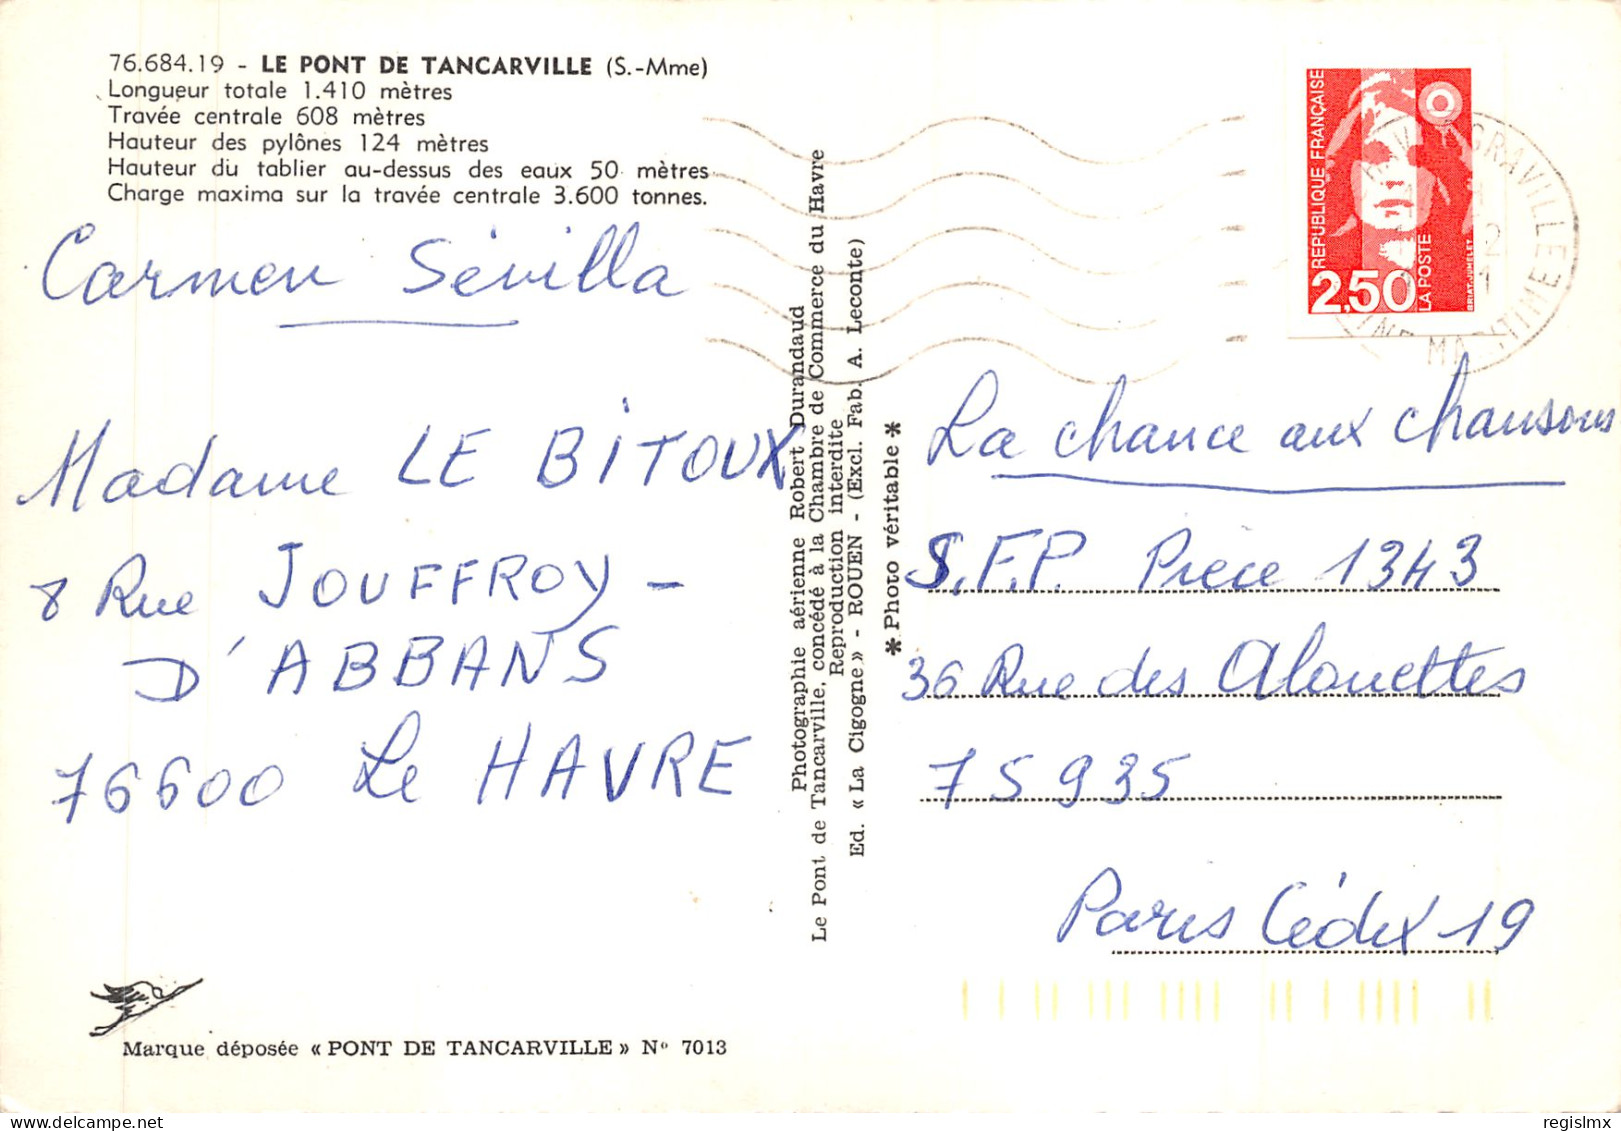 76.684.19 - LE PONT DE TANCARVILLE (S.-Mme)
Longueur totale 1.410 mètres
Travée centrale 608 mètres
Hauteur des pylônes 124 mètres
Hauteur du tablier au-dessus des eaux 50 mètres
Charge maxima sur la travée centrale 3.600 tonnes.
Carmen Sévilla
Madame LE BITOUX
8 Rue JOUFFROY -
D'ABBANS
76600 Le HAVRE
Marque déposée « PONT DE TANCARVILLE » N° 7013
Photographie aérienne Robert Durandaud
Le Pont de Tancarville, concédé à la Chambre de Commerce du Havre
Reproduction interdite
Ed. « La Cigogne » - ROUEN - (Excl. Fab. A. Leconte)
* Photo véritable *
REPUBLIQUE FRANÇAISE
2,50
LA POSTE
BRIAT-JUMELET
GRAVILLE
La chance aux chansons
S.F.P. Pièce 1343
36 Rue des Alouettes
75935
Paris Cédex 19
delcampe.net
regislmx